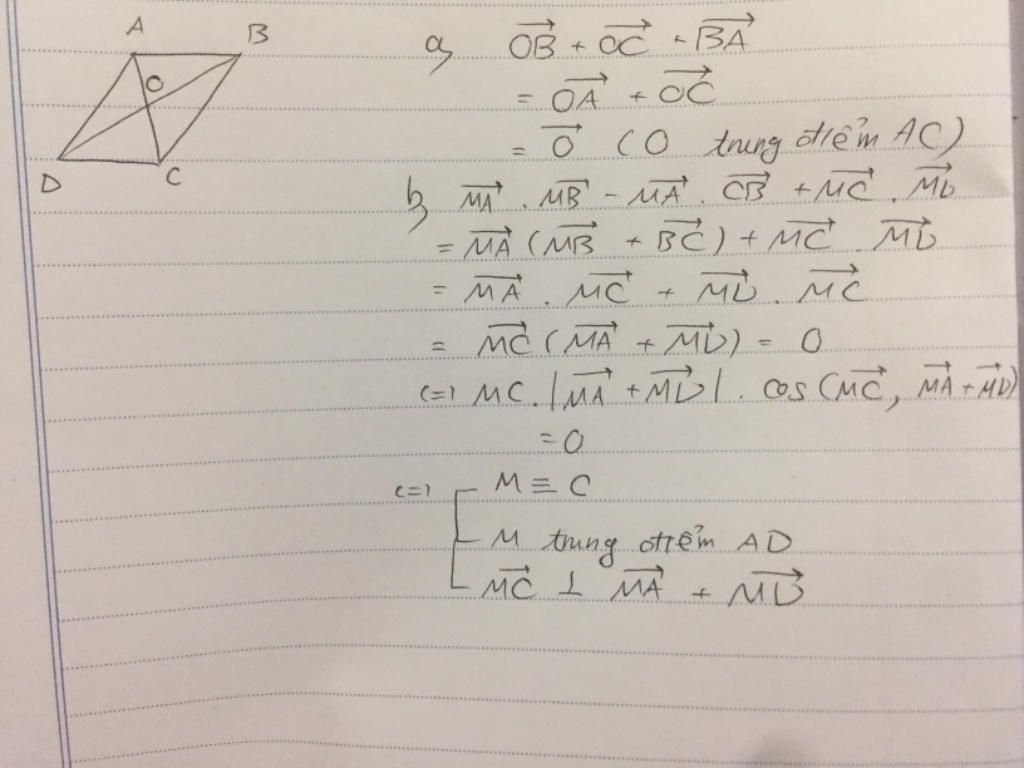 A B
O
D C
a, $\overrightarrow{OB} + \overrightarrow{OC} + \overrightarrow{BA}$
$= \overrightarrow{OA} + \overrightarrow{OC}$
$= \overrightarrow{O}$ (O trung điểm AC)
b, $\overrightarrow{MA} . \overrightarrow{MB} - \overrightarrow{MA} . \overrightarrow{CB} + \overrightarrow{MC} . \overrightarrow{MD}$
$= \overrightarrow{MA} (\overrightarrow{MB} + \overrightarrow{BC}) + \overrightarrow{MC} . \overrightarrow{MD}$
$= \overrightarrow{MA} . \overrightarrow{MC} + \overrightarrow{MD} . \overrightarrow{MC}$
$= \overrightarrow{MC} (\overrightarrow{MA} + \overrightarrow{MD}) = 0$
(=) $MC . |\overrightarrow{MA} + \overrightarrow{MD}| . \cos (\overrightarrow{MC}, \overrightarrow{MA} + \overrightarrow{MD})$
= 0
(=) [ M ≡ C
M trung điểm AD
$\overrightarrow{MC} ⊥ \overrightarrow{MA} + \overrightarrow{MD}$